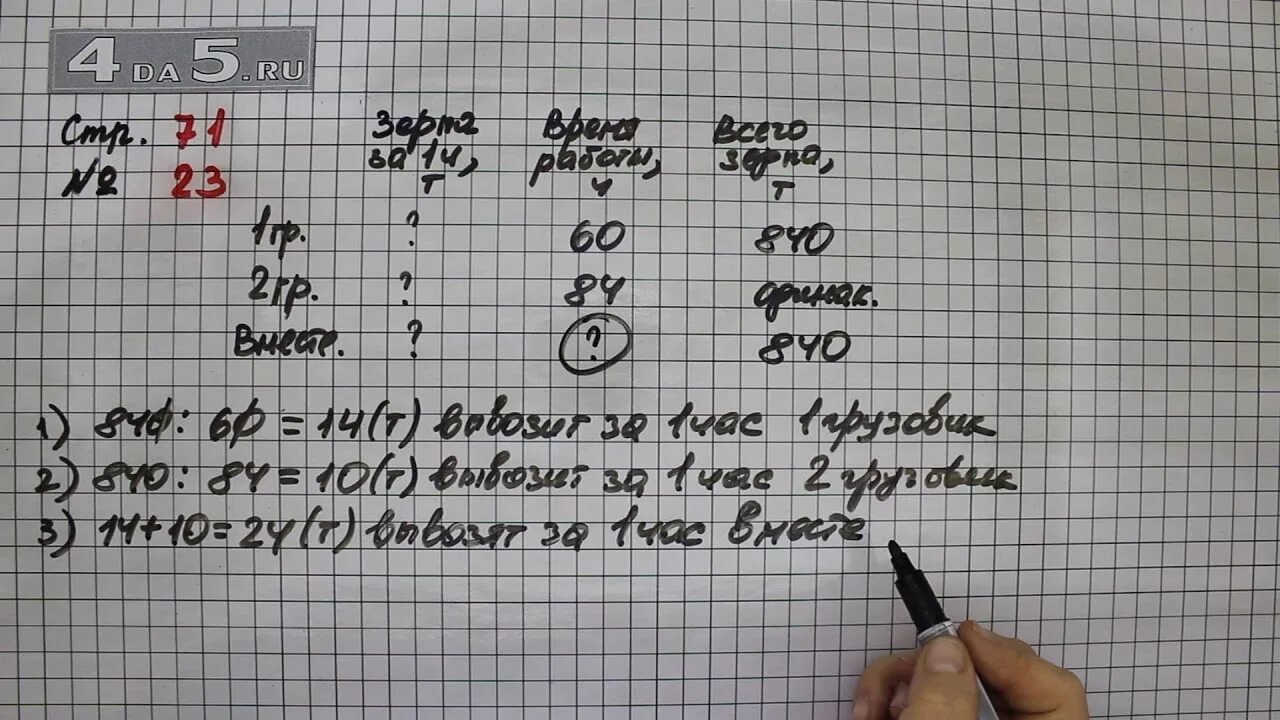 4DA5.RU
Стр. 71
№ 23
Зерна за 1ч, т
Время работы, ч
Всего зерна, т
1 гр. ? 60 840
2 гр. ? 84 одинак.
Вместе. ? ? 840
1) 840 : 60 = 14 (т) вывозит за 1 час 1 грузовик
2) 840 : 84 = 10 (т) вывозит за 1 час 2 грузовик
3) 14 + 10 = 24 (т) вывозят за 1 час вместе